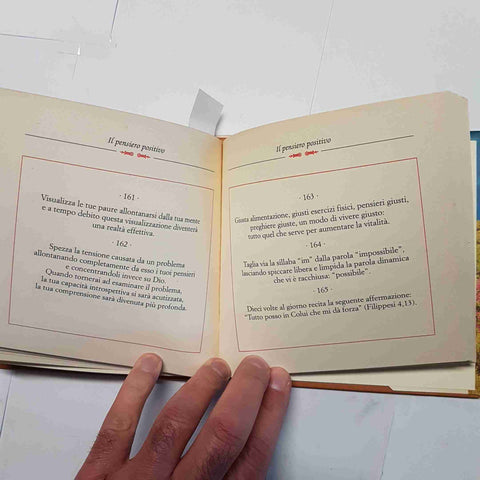 Il pensiero positivo
· 161 ·
Visualizza le tue paure allontanarsi dalla tua mente
e a tempo debito questa visualizzazione diventerà
una realtà effettiva.
· 162 ·
Spezza la tensione causata da un problema
allontanando completamente da esso i tuoi pensieri
e concentrandoli invece su Dio.
Quando tornerai ad esaminare il problema,
la tua capacità introspettiva si sarà acutizzata,
la tua comprensione sarà divenuta più profonda.
Il pensiero positivo
· 163 ·
Giusta alimentazione, giusti esercizi fisici, pensieri giusti,
preghiere giuste, un modo di vivere giusto:
tutto quel che serve per aumentare la vitalità.
· 164 ·
Taglia via la sillaba "im" dalla parola "impossibile",
lasciando spiccare libera e limpida la parola dinamica
che vi è racchiusa: "possibile".
· 165 ·
Dieci volte al giorno recita la seguente affermazione:
"Tutto posso in Colui che mi dà forza" (Filippesi 4,13).